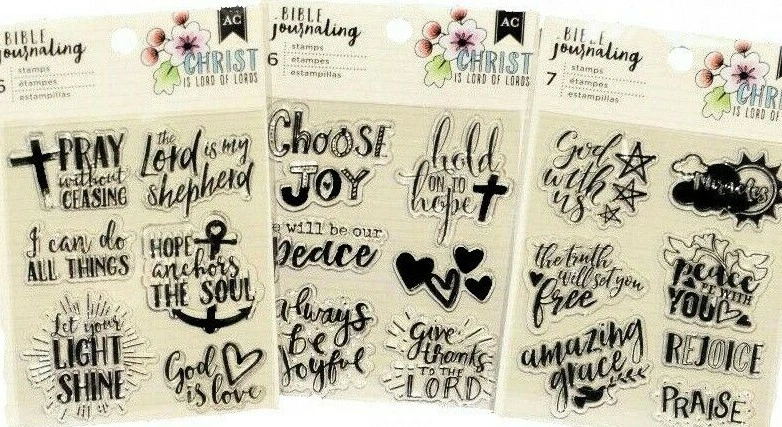 BIBLE
journaling
6
stamps
étampes
estampillas
AC
CHRIST
IS LORD OF LORDS
PRAY
without
CEASING
the
Lord is my
shepherd
I can do
ALL THINGS
HOPE
anchors
THE SOUL
Let your
LIGHT
SHINE
God
is love
BIBLE
journaling
6
stamps
étampes
estampillas
AC
CHRIST
IS LORD OF LORDS
CHOOSE
JOY
hold
ON TO
hope
will be our
peace
always
Be
Joyful
give
thanks
TO THE
LORD
BIBLE
journaling
7
stamps
étampes
estampillas
AC
IS LORD OF
God
with
us
Miracles
the truth
will set you
free
peace
BE WITH
YOU
amazing
grace
REJOICE
PRAISE